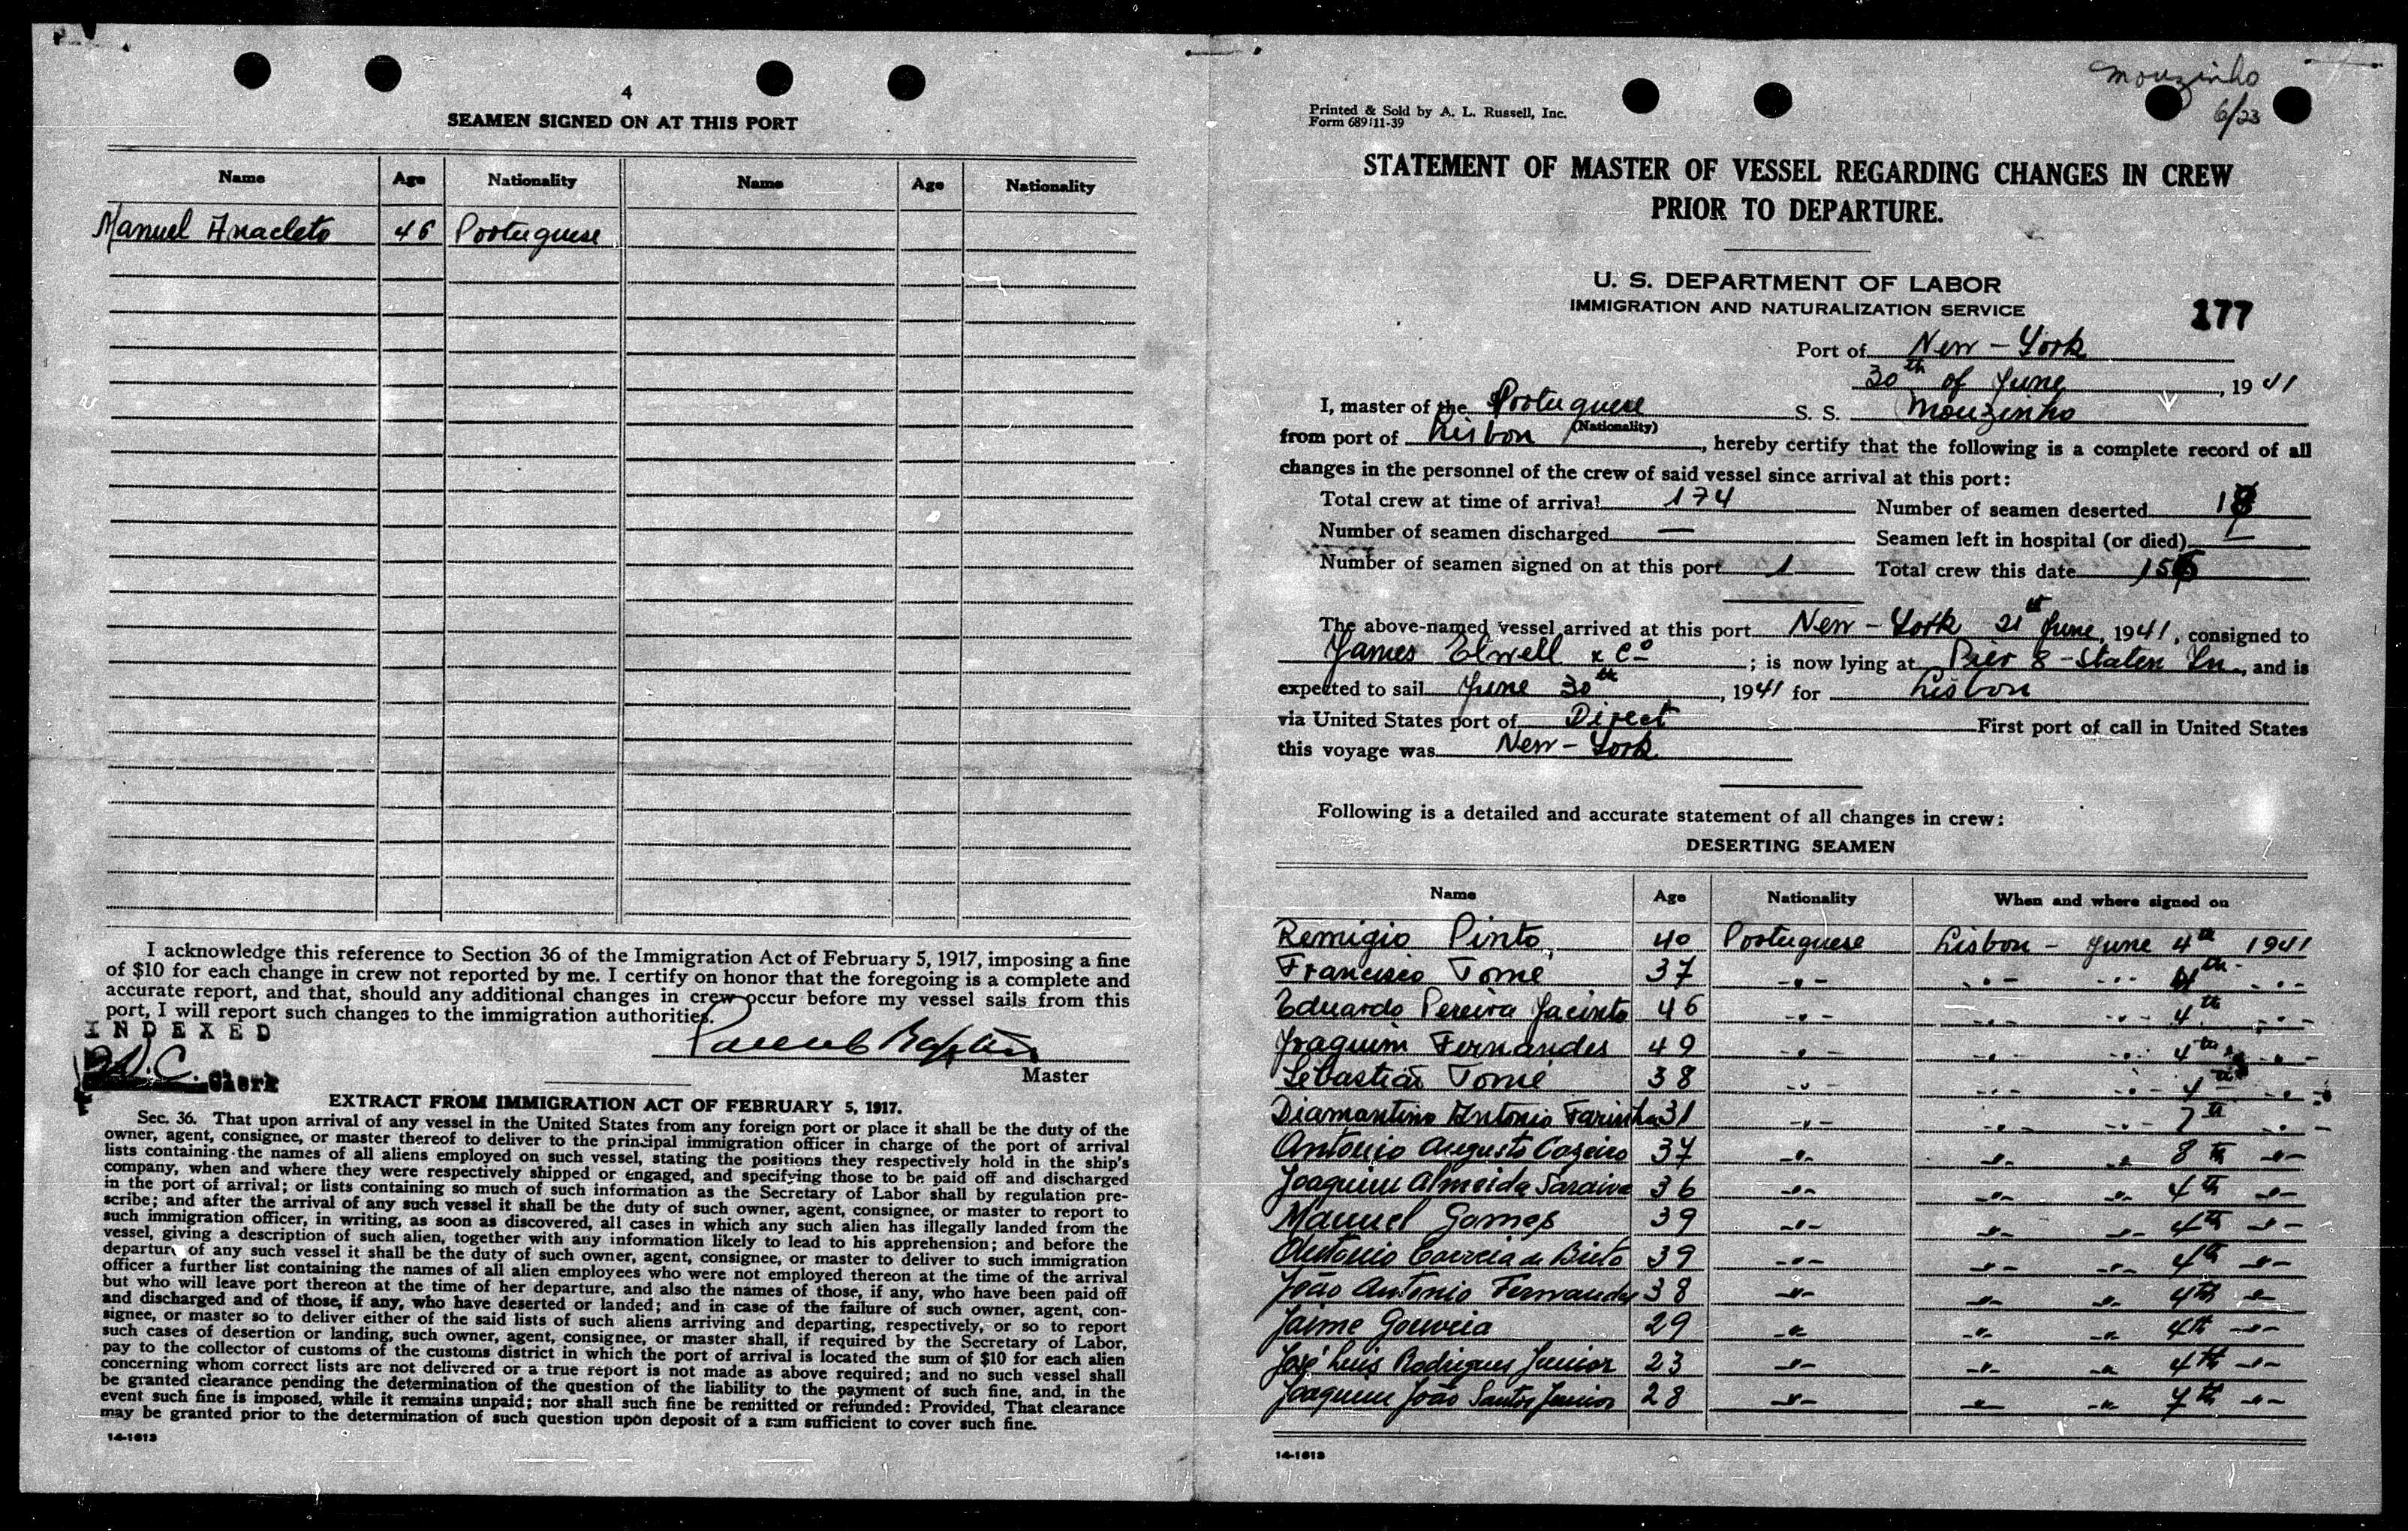 4
SEAMEN SIGNED ON AT THIS PORT
Name Age Nationality Name Age Nationality
Manuel Anacleto 46 Portuguese
I acknowledge this reference to Section 36 of the Immigration Act of February 5, 1917, imposing a fine
of $10 for each change in crew not reported by me. I certify on honor that the foregoing is a complete and
accurate report, and that, should any additional changes in crew occur before my vessel sails from this
port, I will report such changes to the immigration authorities.
INDEXED
D.C. Clerk
Master
EXTRACT FROM IMMIGRATION ACT OF FEBRUARY 5, 1917.
Sec. 36. That upon arrival of any vessel in the United States from any foreign port or place it shall be the duty of the
owner, agent, consignee, or master thereof to deliver to the principal immigration officer in charge of the port of arrival
lists containing the names of all aliens employed on such vessel, stating the positions they respectively hold in the ship's
company, when and where they were respectively shipped or engaged, and specifying those to be paid off and discharged
in the port of arrival; or lists containing so much of such information as the Secretary of Labor shall by regulation pre-
scribe; and after the arrival of any such vessel it shall be the duty of such owner, agent, consignee, or master to report to
such immigration officer, in writing, as soon as discovered, all cases in which any such alien has illegally landed from the
vessel, giving a description of such alien, together with any information likely to lead to his apprehension; and before the
departure of any such vessel it shall be the duty of such owner, agent, consignee, or master to deliver to such immigration
officer a further list containing the names of all alien employees who were not employed thereon at the time of the arrival
but who will leave port thereon at the time of her departure, and also the names of those, if any, who have been paid off
and discharged and of those, if any, who have deserted or landed; and in case of the failure of such owner, agent, con-
signee, or master so to deliver either of the said lists of such aliens arriving and departing, respectively, or so to report
such cases of desertion or landing, such owner, agent, consignee, or master shall, if required by the Secretary of Labor,
pay to the collector of customs of the customs district in which the port of arrival is located the sum of $10 for each alien
concerning whom correct lists are not delivered or a true report is not made as above required; and no such vessel shall
be granted clearance pending the determination of the question of the liability to the payment of such fine, and, in the
event such fine is imposed, while it remains unpaid; nor shall such fine be remitted or refunded: Provided, That clearance
may be granted prior to the determination of such question upon deposit of a sum sufficient to cover such fine.
14-1613
Mouzinho
6/23
Printed & Sold by A. L. Russell, Inc.
Form 689 11-39
STATEMENT OF MASTER OF VESSEL REGARDING CHANGES IN CREW
PRIOR TO DEPARTURE.
U. S. DEPARTMENT OF LABOR
IMMIGRATION AND NATURALIZATION SERVICE
177
Port of New-York
30th of June, 1941
I, master of the Portuguese S. S. Mouzinho
(Nationality)
from port of Lisbon, hereby certify that the following is a complete record of all
changes in the personnel of the crew of said vessel since arrival at this port:
Total crew at time of arrival 174 Number of seamen deserted
Number of seamen discharged — Seamen left in hospital (or died) —
Number of seamen signed on at this port 1 Total crew this date
The above-named vessel arrived at this port New-York 21st June, 1941, consigned to
James Elwell & Co; is now lying at Pier 8-Staten In, and is
expected to sail June 30th, 1941 for Lisbon
via United States port of Direct First port of call in United States
this voyage was New-York
Following is a detailed and accurate statement of all changes in crew:
DESERTING SEAMEN
Name Age Nationality When and where signed on
Remigio Pinto 40 Portuguese Lisbon - June 4th 1941
Francisco Tomé 37 -"- -"- -"- 4th -"-
Eduardo Pereira Jacinto 46 -"- -"- -"- 4th -"-
Joaquim Fernandes 49 -"- -"- -"- 4th -"-
Sebastião Tomé 38 -"- -"- -"- 4th -"-
Diamantino Antonio Farinha 31 -"- -"- -"- 7th -"-
Antonio Augusto Cazeiro 37 -"- -"- -"- 8th -"-
Joaquim Almeida Saraiva 36 -"- -"- -"- 4th -"-
Manuel Gomes 39 -"- -"- -"- 4th -"-
Antonio Correia de Brito 39 -"- -"- -"- 4th -"-
João Antonio Fernandes 38 -"- -"- -"- 4th -"-
Jaime Gouveia 29 -"- -"- -"- 4th -"-
José Luis Rodrigues Junior 23 -"- -"- -"- 4th -"-
Joaquim João Santos Junior 28 -"- -"- -"- 7th -"-
14-1613